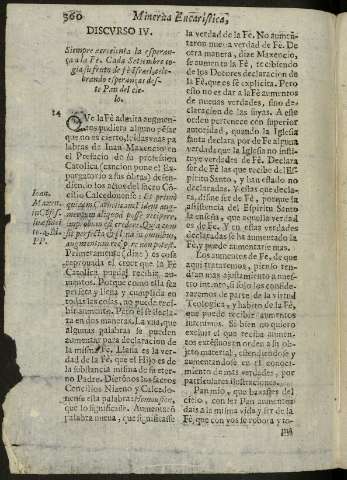 360 Minerva Eucaristica,
DISCVRSO IV.
Siempre acrecienta la esperan-
ça a la Fè. Cada Setiembre co-
gia su fruto de fè Israel, cele-
brando esperanças des-
te Pan del cie-
lo.
14 QVe la Fè admita augmen-
tos pudiera alguno pẽsar
que no es cierto, leidas vnas pa
labras de Iuan Maxencio en
el Prefacio de su profession
Catolica (exancion pone el Ex-
purgatorio
diendo los
cilio Calcedonense: Et primũ
Ioan.
Maxen.
PP.
Primeramente (dize) es cosa
reprouada el creer que la Fè
Catolica pueda recibir au-
mentos. Porque como ella sea
perfeta y llena y cumplida en
todas las cosas, no puede reci-
bir aumento. Pero este declara-
ta en dos maneras. La vna, que
algunas palabras se pueden
aumentar para declaracion de
la misma Fè. Llana es la ver-
dad de la Fè, que el Hijo es de
la substancia misma de su eter-
no Padre. Dieronos los sacros
Concilios Nizeno y Calcedo-
nense esta palabra Homousion,
que lo significasse. Aumentarõ
palabra nueua, que significasse
la verdad de la Fè. No aumẽ-
taron nueua verdad de Fè. De
otra manera, dize Maxencio,
se aumenta la Fè, recibiendo
de los Dotores declaracion de
la Fè, que es fè explicita. Pero
esso no es dar a la Fè aumentos
de nueuas verdades, sino de-
claracion de las suyas. A este
orden pertenece con superior
autoridad, quando la Iglesia
santa declara por de Fè alguna
verdad: que la Iglesia no insti-
tuye verdades de Fè. Declara
ser de Fè las que recibe del Es-
piritu Santo, y han estado no
declaradas. Y estas que decla-
rada, dizense de Fè, porque la
assistencia del Espiritu Santo
la enseña, que aquella verdad
es de Fè. Y en estas verdades
declaradas se ha aumentado la
Fè, y puede aumentarse mas.
Los aumentos de Fè, de que
aqui tratarémos, pienso ten-
drán mas ajustamiento a nues-
tro intento, si solo los conside-
raremos de parte de la virtud
Teologica, y habito de la Fè,
que puede recibir aumentos
intensiuos. Si bien no quiero
excluir el que reciba aumen-
tos extẽsiuos en orden a su ob-
jeto material, estendiendose y
aumentandose en el conoci-
miento de mas verdades, por
particulares ilustraciones.
Pan mio, que baxastes del
cielo, con ser Pan aumentan-
dais a la misma vida y ser de la
Fè, que con vos se robora y to-